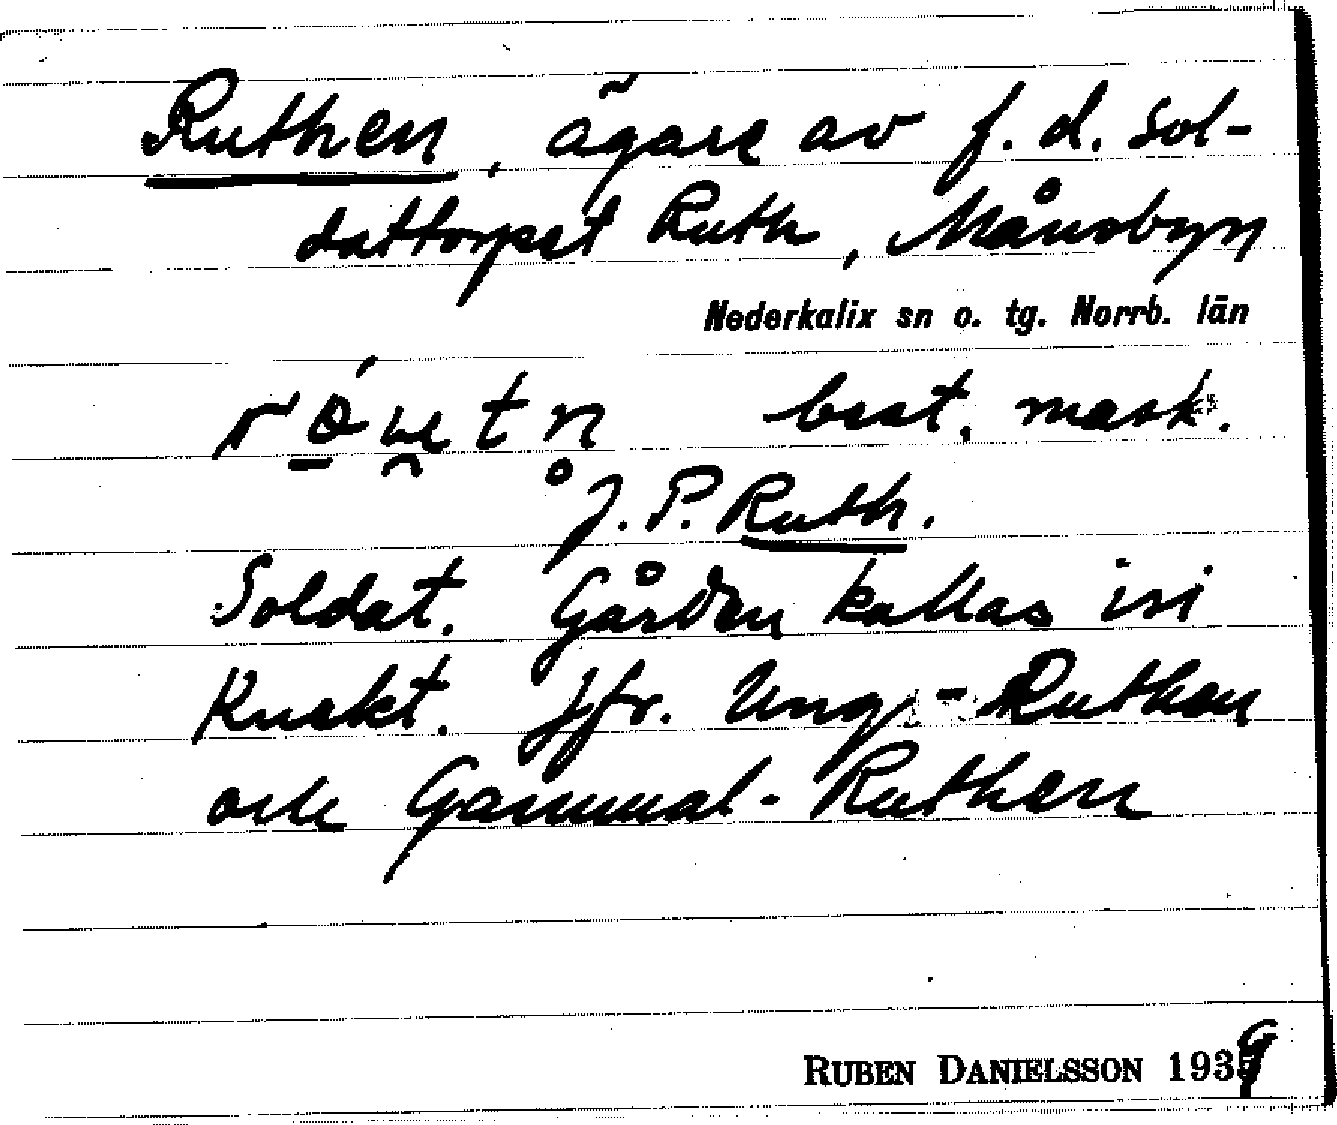 Ruthen, ägare av f. d. sol-
dattorpet Ruth, Månsbyn
Nederkalix sn o. tg. Norrb. län
best. mask.
J. P. Ruth.
Soldat. Gården kallas isi
Knekt. Jfr. Ung-Ruthen
och Gammal-Ruthen
RUBEN DANIELSSON 1939